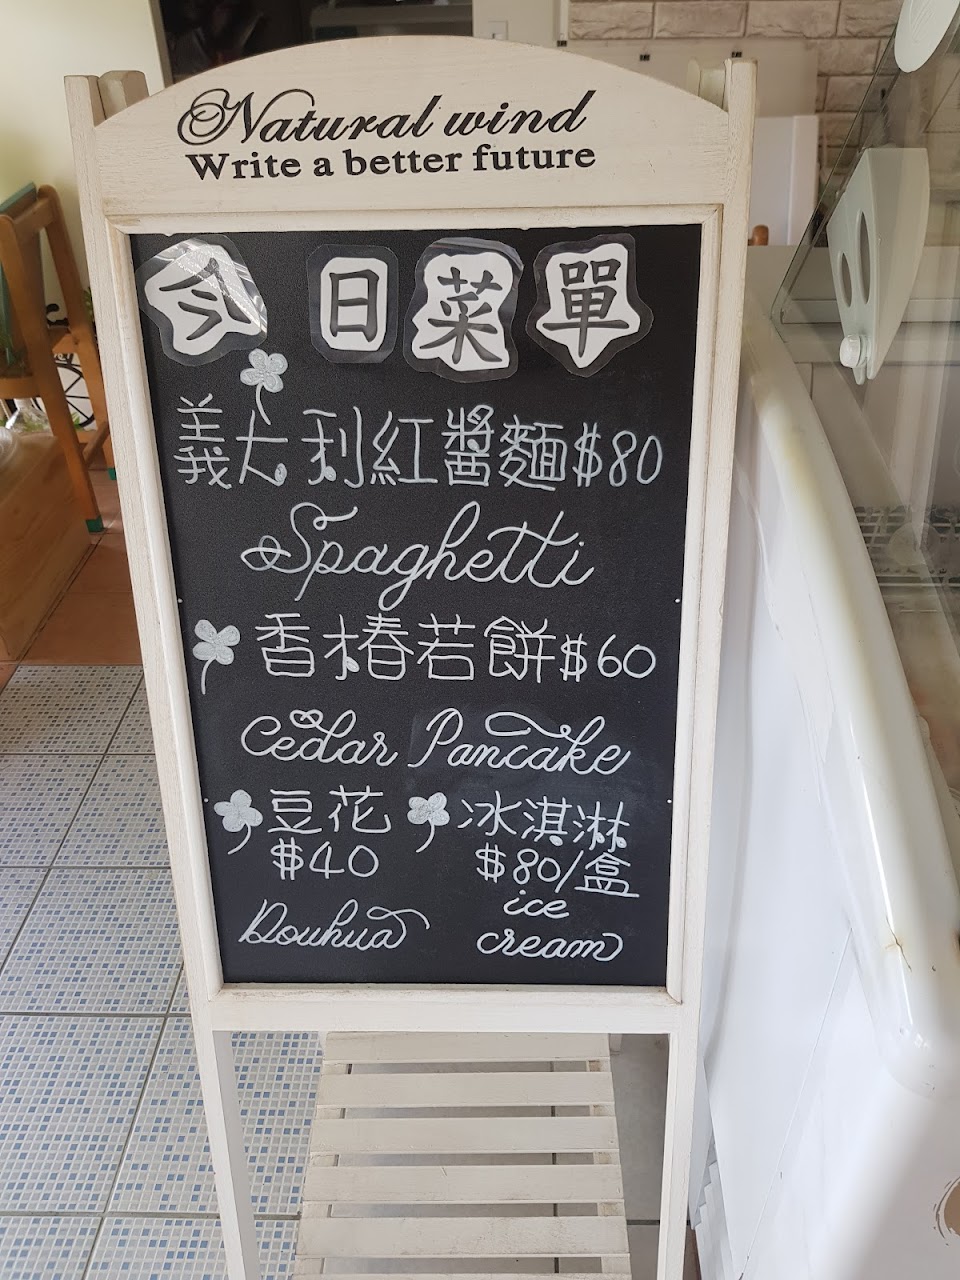 Natural wind
Write a better future
今日菜單
義大利紅醬麵$80
Spaghetti
香椿若餅$60
Cedar Pancake
豆花
$40
Douhua
冰淇淋
$80/盒
ice
cream